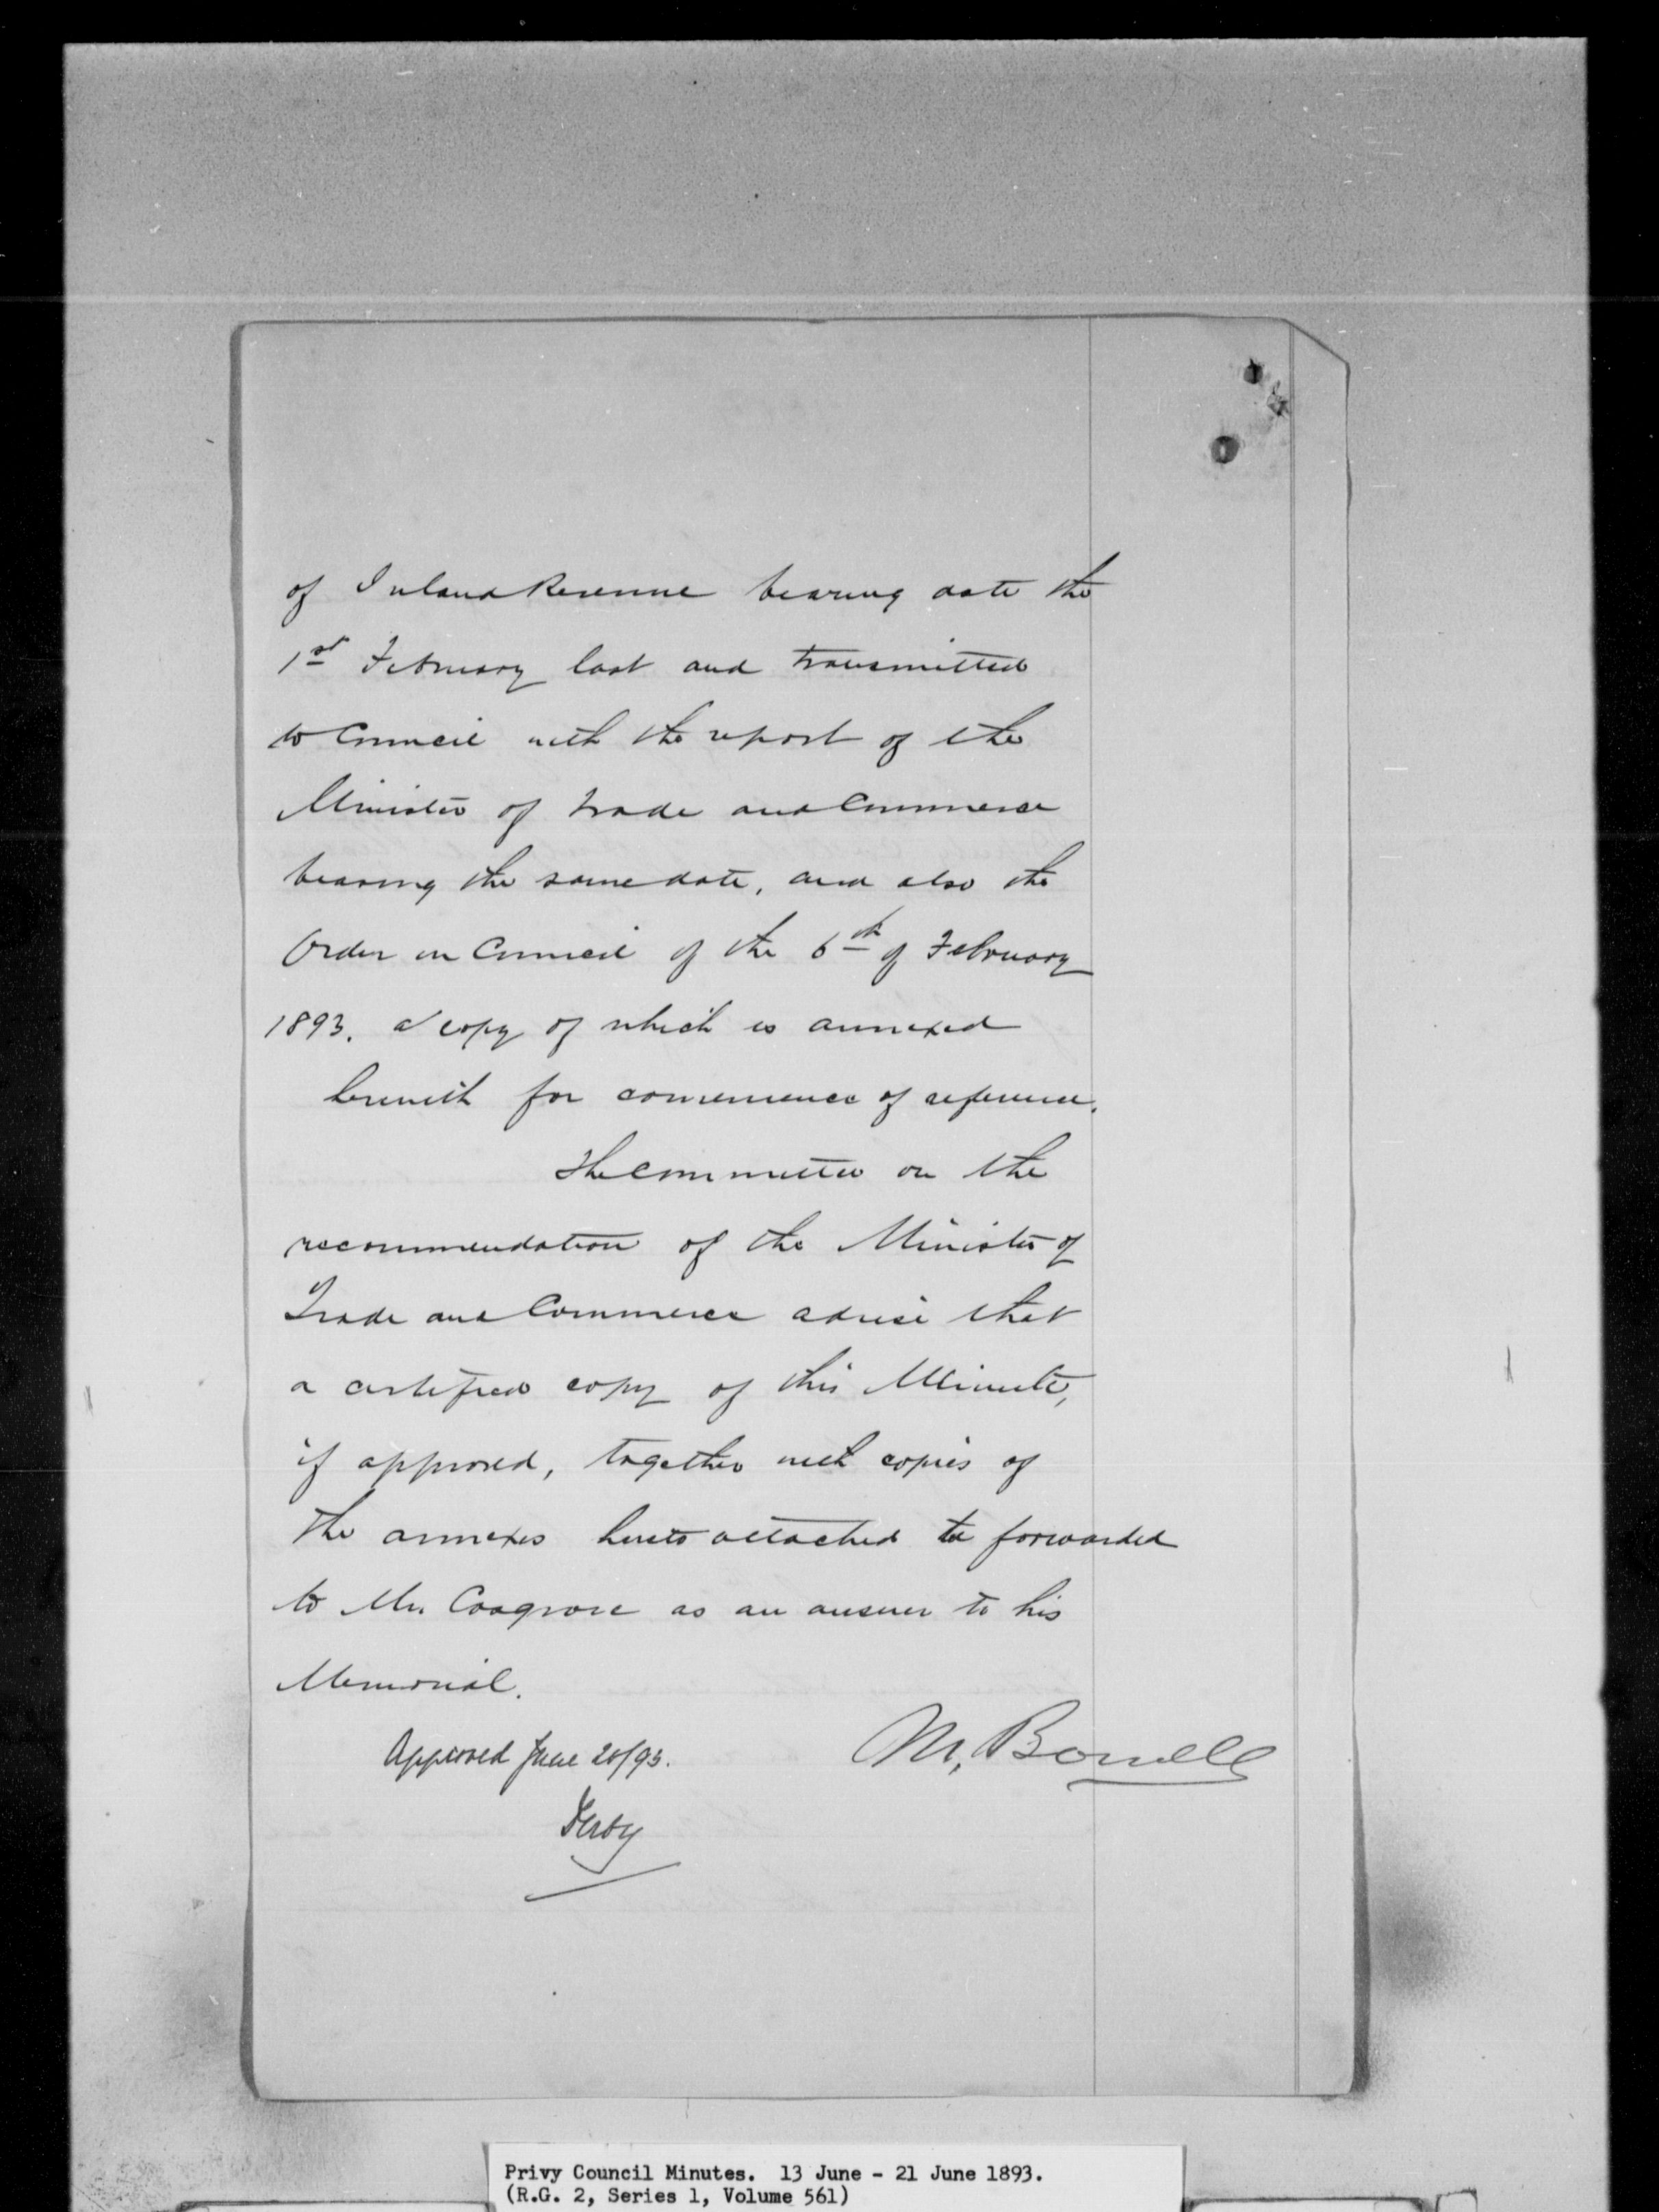 of Inland Revenue bearing date the
1st February last and transmitted
to Council with the report of the
Minister of Trade and Commerce
bearing the same date, and also the
Order in Council of the 6th of February
1893. a copy of which is annexed
herewith for convenience of reference.
The Committee on the
recommendation of the Minister of
Trade and Commerce advise that
a certified copy of this Minute,
if approved, together with copies of
the annexes hereto attached be forwarded
to Mr. Cosgrove as an answer to his
Memorial.
Approved June 20/93.
M. Bowell
Derby
Privy Council Minutes. 13 June - 21 June 1893.
(R.G. 2, Series 1, Volume 561)